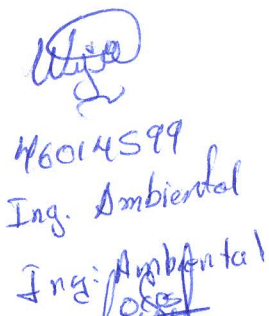 46014599
Ing. Ambiental
Ing: Ambiental